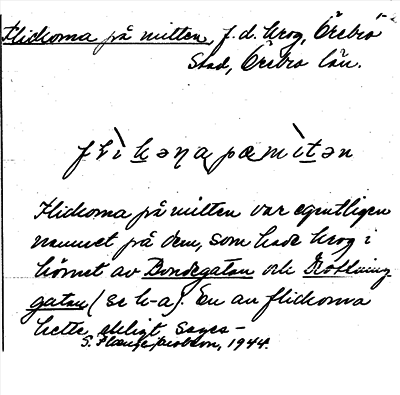 Flickorna på mitten, f.d. krog, Örebro
Stad, Örebro län.
flìkəηa pæmìtən
Flickorna på mitten var egentligen
namnet på dem, som hade krog i
hörnet av Bondegatan och
gatan (se h-a). En av flickorna
hette, sages –
S. Jacobson, 1944.